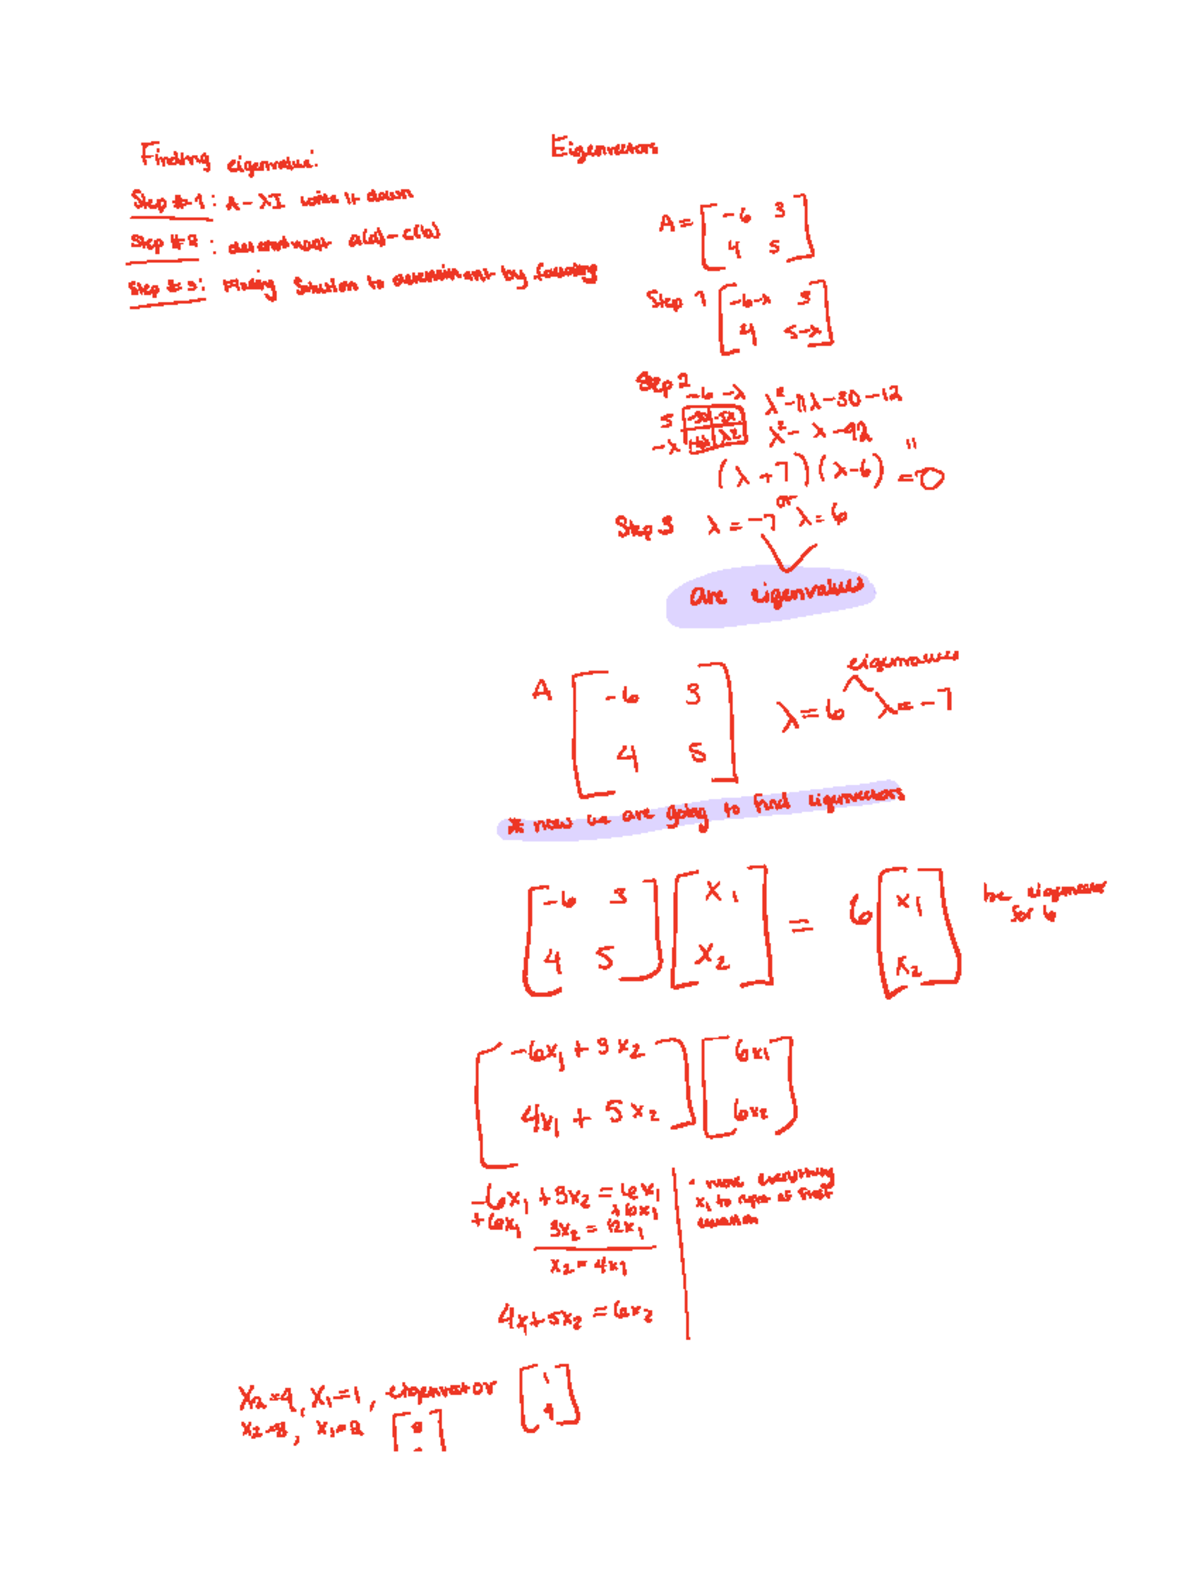 Finding eigenvalue:
Step #1: A - λI write it down
Step #2: determinant a(d) - c(b)
Step #3: Finding Solution to determinant by factoring
Eigenvectors
A = [-6 3
4 5]
Step 1 [-6-λ 3
4 5-λ]
Step 2
-6 -λ
5 -30 -5λ
-λ λ2
λ² - 1λ - 30 - 12
λ² - λ - 42
(λ + 7)(λ - 6) = 0
Step 3 λ = -7 or λ = 6
are eigenvalues
eigenvalues
A [-6 3
4 5] λ = 6 λ = -7
* now we are going to find eigenvectors
[-6 3
4 5] [x₁
x₂] = 6 [x₁
x₂]
be eigenvector
for 6
[-6x₁ + 3x₂
4x₁ + 5x₂] [6x₁
6x₂]
-6x₁ + 3x₂ = 6x₁
+6x₁ +6x₁
3x₂ = 12x₁
x₂ = 4x₁
4x₁ + 5x₂ = 6x₂
• move everything
x₁ to right of first
equation
X₂=4, X₁=1, eigenvector [1
4]
x₂=8, x₁=2